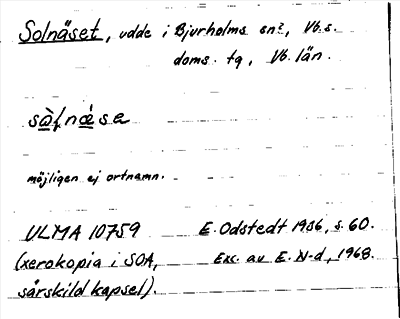 Solnäset, udde i Bjurholms sn?, Vb. s.
doms. tg, Vb. län.
sàɭnǽse
möjligen ej ortnamn.
ULMA 10759 E. Odstedt 1936, s. 60.
(xerokopia i SOA, Exc. av E. N-d, 1968.
särskild kapsel).